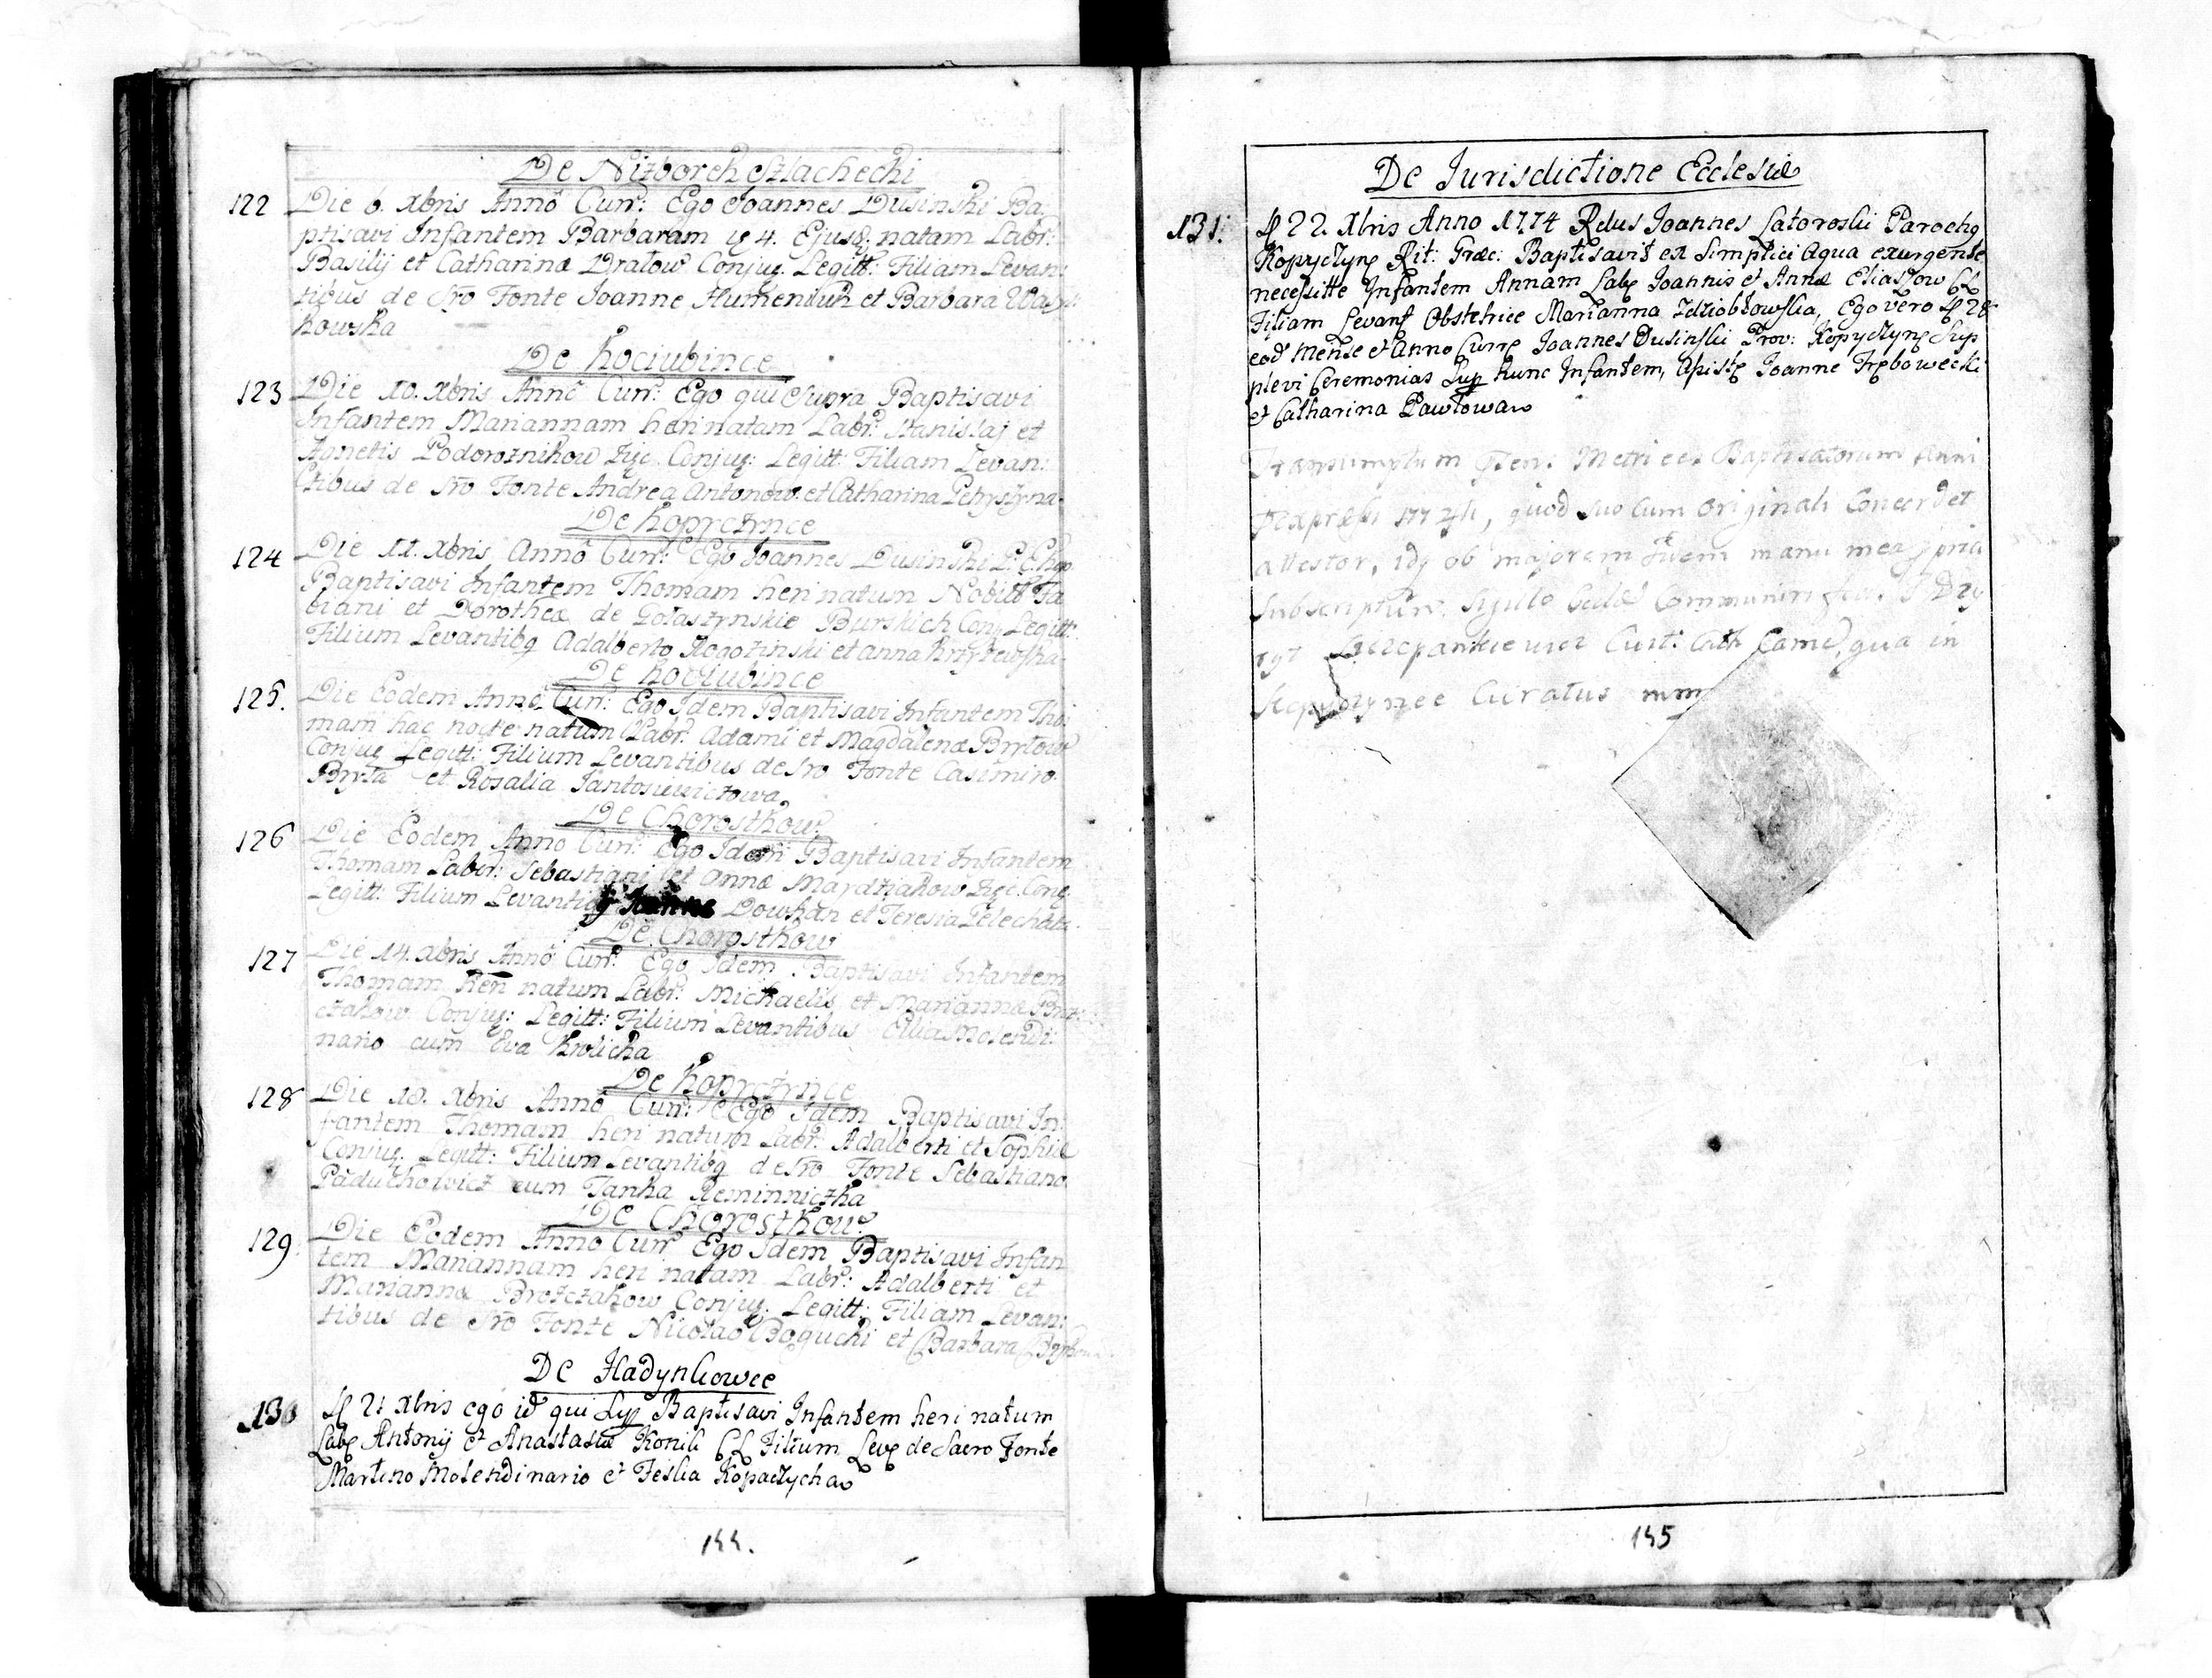 De Nizboreh Szlachechi
122 Die 6. Xbris Anno Curr: Ego Joannes Dusinski Ba
ptisavi Infantem Barbaram 4. Ejusd: natam Labr:
Basilij et Catharinæ Dratow Conjug. Legitt: Filiam Levan:
tibus de Sro Fonte Joanne Humeniuk et Barbara
kowska
De Kociubince
123 Die 10. Xbris Anno Curr: Ego qui Supra Baptisavi
Infantem Mariannam heri natam Labr: Stanislaj et
Agnetis Podoroznikow Conjug: Legitt: Filiam Levan:
tibus de Sro Fonte Andrea Antonow. et Catharina
De Kopyczynce
124 Die 11. Xbris Anno Curr: Ego Joannes Dusinski
Baptisavi Infantem Thomam heri natum Nobill: Fa
biani et Dorotheæ de Burskich Conj Legitt:
Filium Levantibq Adalberto Rogozinski et Anna
De Kociubince
125. Die Eodem Anno Curr: Ego Idem Baptisavi Infantem Tho:
mam hac nocte natum Labr: Adami et Magdalenæ Bryłow
Conjug Legitt: Filium Levantibus de Sro Fonte Casimiro
Bryła et Rosalia
De Chorostkow
126 Die Eodem Anno Curr: Ego Idem Baptisavi Infantem
Thomam Labr: Sebastiani et Annæ Conj
Legitt: Filium Levantibq Dowhan et Teresia
De Chorostkow
127 Die 14. Xbris Anno Curr: Ego Idem Baptisavi Infantem
Thomam heri natum Labr: Michaelis et Mariannæ
Conjug: Legitt: Filium Levantibus Molendi:
nario cum Eva Krolicha
De Kopyczynce
128 Die 18. Xbris Anno Curr: Ego Idem Baptisavi In:
fantem Thomam heri natum Labr: Adalberti et Sophiæ
Conjug. Legitt: Filium Levantibq de Sro Fonte Sebastiano
Paduchowicz cum Janka Reminniczka
De Chorostkow
129. Die Eodem Anno Curr Ego Idem Baptisavi Infan
tem Mariannam heri natam Labr: Adalberti et
Mariannæ Brozczakow Conjug. Legitt: Filiam Levan:
tibus de Sro Fonte Nicolao Boguchi et Barbara
De Hadynkowce
130 21 Xbris ego id qui Sup Baptisavi Infantem heri natum
Lab Antonij et Anastasiæ Konik CL Filium Lev de Sacro Fonte
Martino Molendinario et Feska Kopaczycha
144.
De Jurisdictione Ecclesiæ
131. 22. Xbris Anno 1774 Rdus Joannes Latoroski Parochq
Kopyczyn Rit: Græc: Baptisavit ex Simplici Aqua exurgente
necessitte Infantem Annam Lab Joannis et Annæ Eliaszow CL
Filiam Levant Obstetrice Marianna Ego vero 28
eod mense et Anno Curr Joannes Dusinski Prov: Kopyczyn Sup
plevi Ceremonias Sup hunc Infantem, Joanne Trębowecki
et Catharina Pawłowa
Transumptum Metrices Baptisatorum Anni
1774ti, quod suo cum Originali Concordet
attestor, idq ob majorem fidem manu mea ppria
Subscriptum, Sigillo Communim
Szczepankiewicz Curt: Cath Camd, qua in
Kopyczynce Curatus mm
145